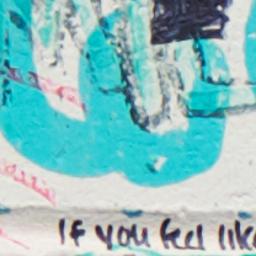 If you feel like